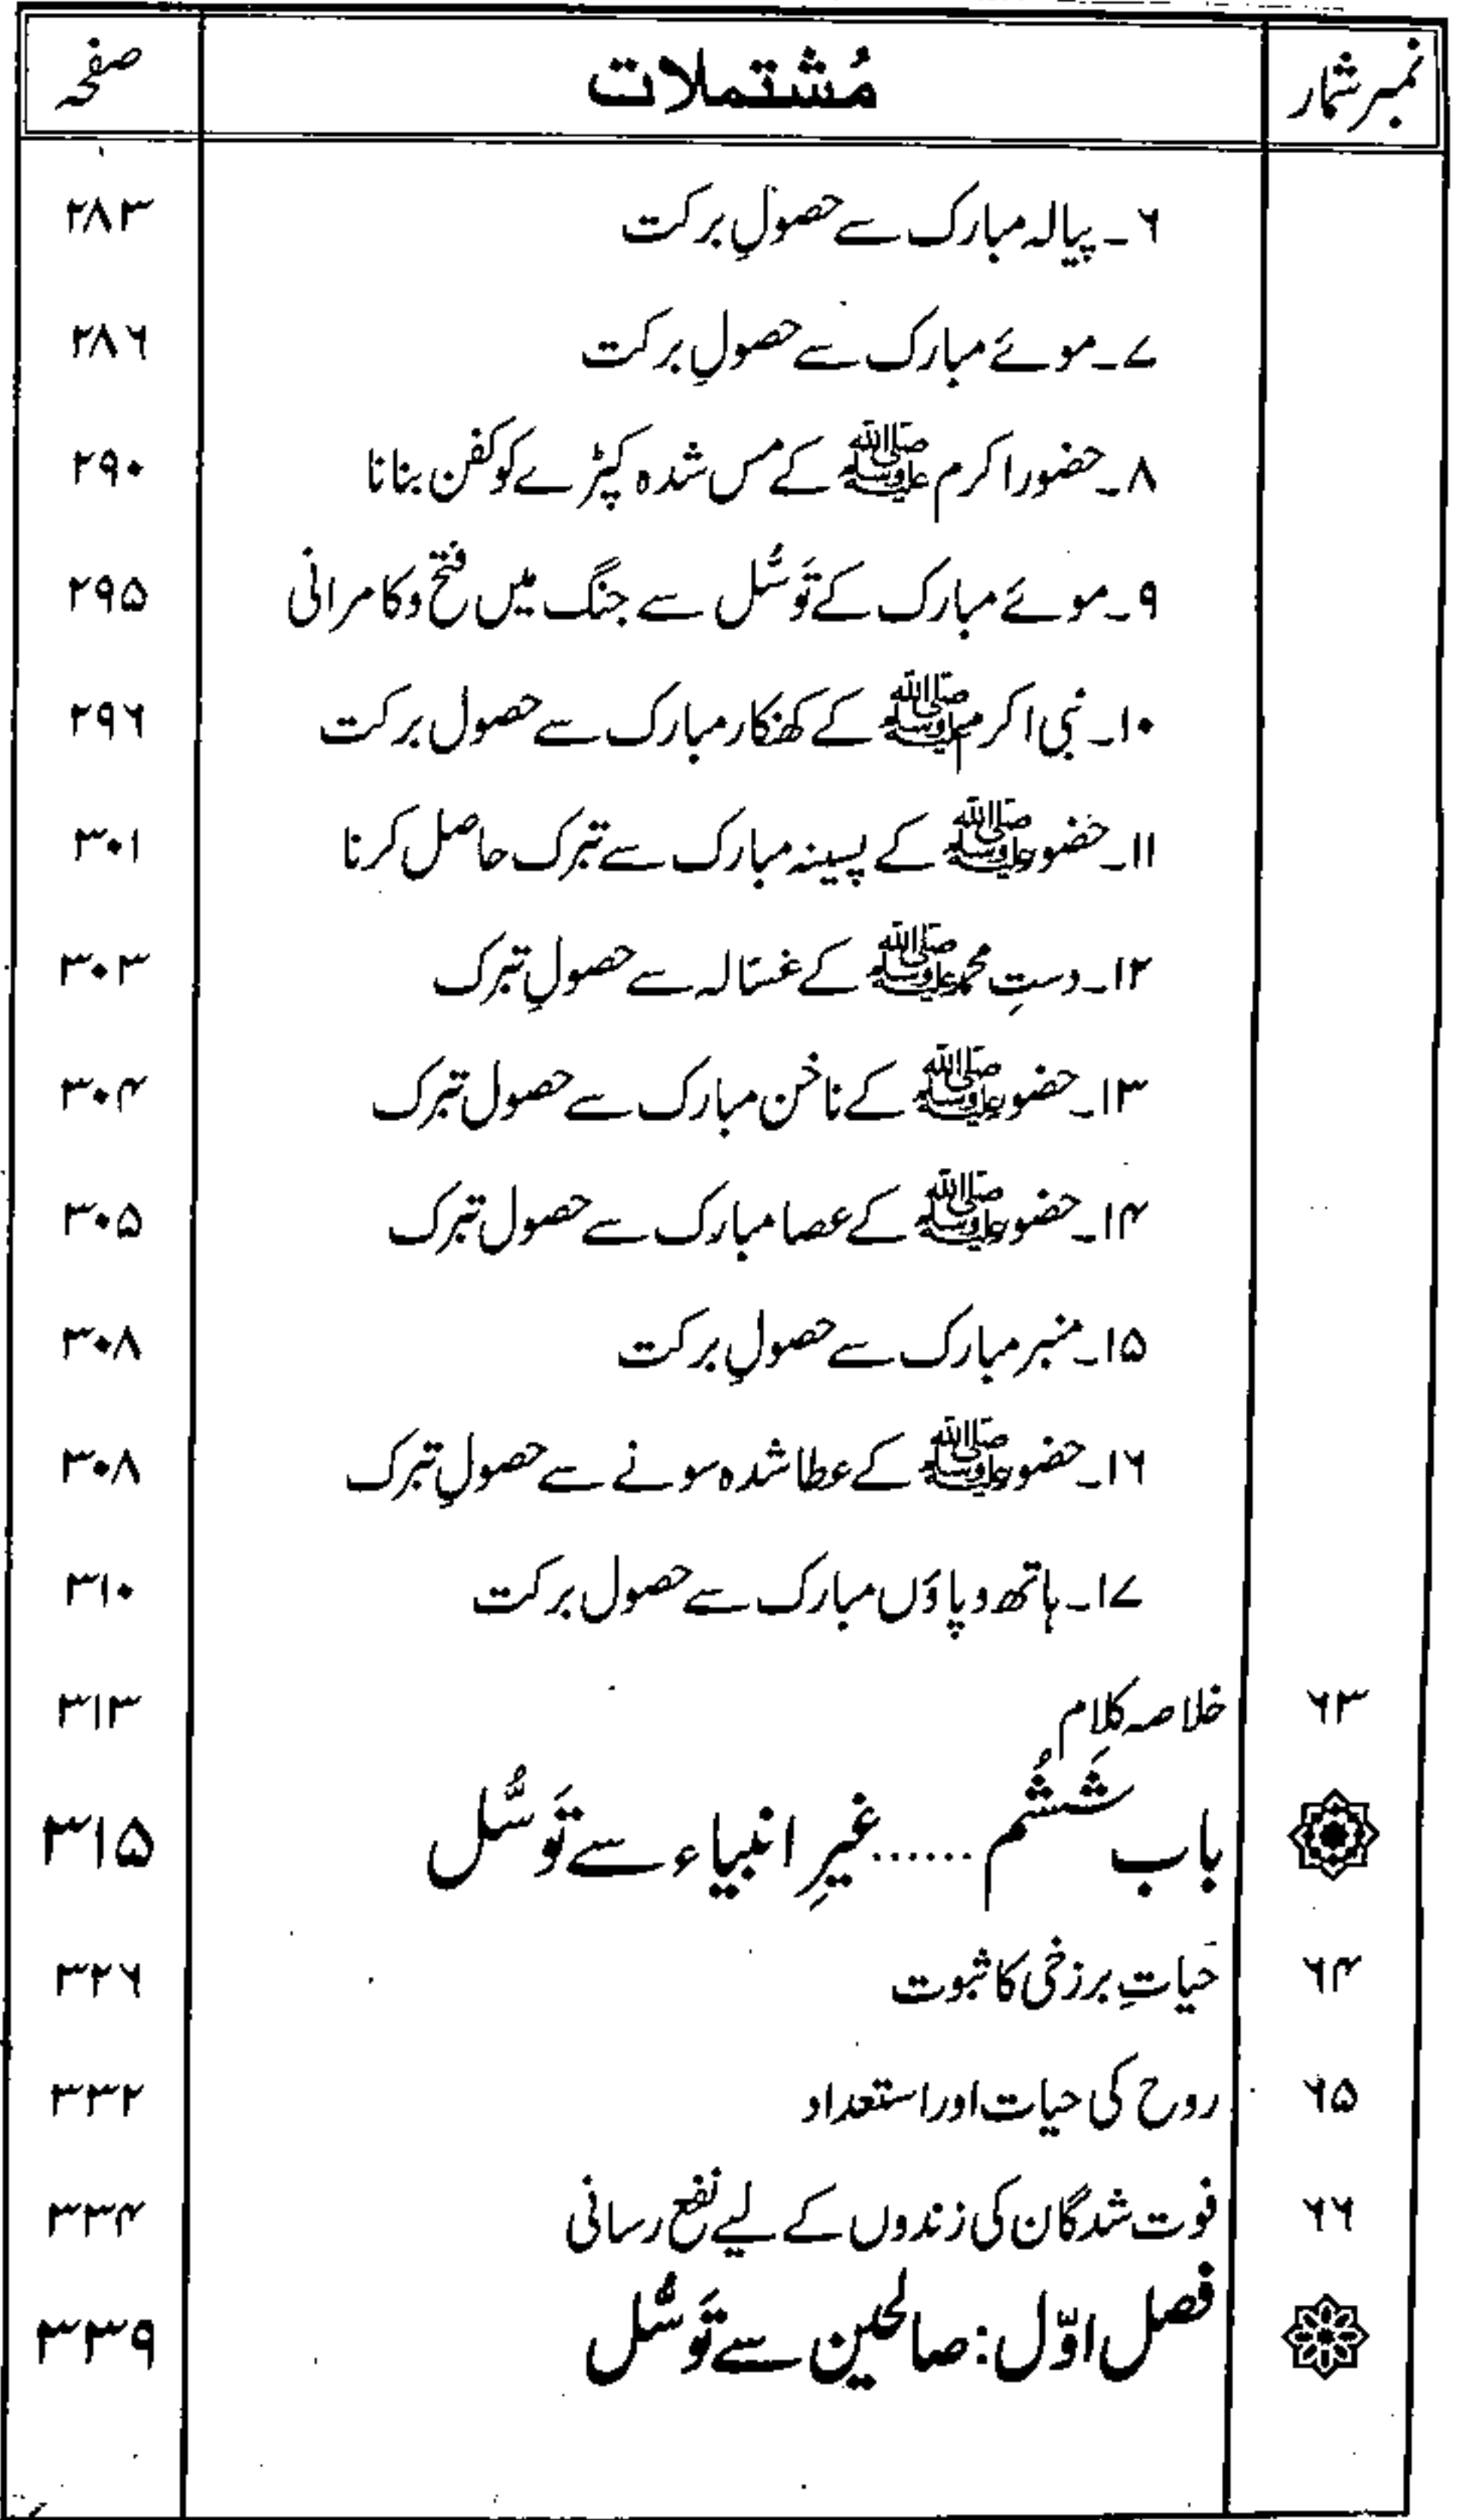 نمبر شمار مُشتملات صفحہ
۶۔ پیالہ مبارک سے حصولِ برکت ۲۸۳
۷۔ موئے مبارک سے حصولِ برکت ۲۸۶
۸۔ حضور اکرم ﷺ کے مس شدہ کپڑے کو کفن بنانا ۲۹۰
۹۔ موئے مبارک کے تَوَسُّل سے جنگ میں فتح و کامرانی ۲۹۵
۱۰۔ نبی اکرم ﷺ کے کھنکار مبارک سے حصول برکت ۲۹۶
۱۱۔ حضور ﷺ کے پسینہ مبارک سے تبرک حاصل کرنا ۳۰۱
۱۲۔ دستِ محمد ﷺ کے غسّالہ سے حصولِ تبرک ۳۰۳
۱۳۔ حضور ﷺ کے ناخن مبارک سے حصول تبرک ۳۰۴
۱۴۔ حضور ﷺ کے عصا مبارک سے حصول تبرک ۳۰۵
۱۵۔ منبر مبارک سے حصولِ برکت ۳۰۸
۱۶۔ حضور ﷺ کے عطا شدہ سونے سے حصولِ تبرک ۳۰۸
۱۷۔ ہاتھ و پاؤں مبارک سے حصول برکت ۳۱۰
۶۳ خلاصہ کلام ۳۱۳
باب شَشُم ...... غیرِ انبیاء سے تَوَسُّل ۳۱۵
۶۴ حَیاتِ برزخی کا ثبوت ۳۲۶
۶۵ روح کی حیات اور استعداد ۳۳۲
۶۶ فوت شدگان کی زندوں کے لیے نفع رسانی ۳۳۴
فصل اوّل: صالحین سے تَوَسُّل ۳۳۹